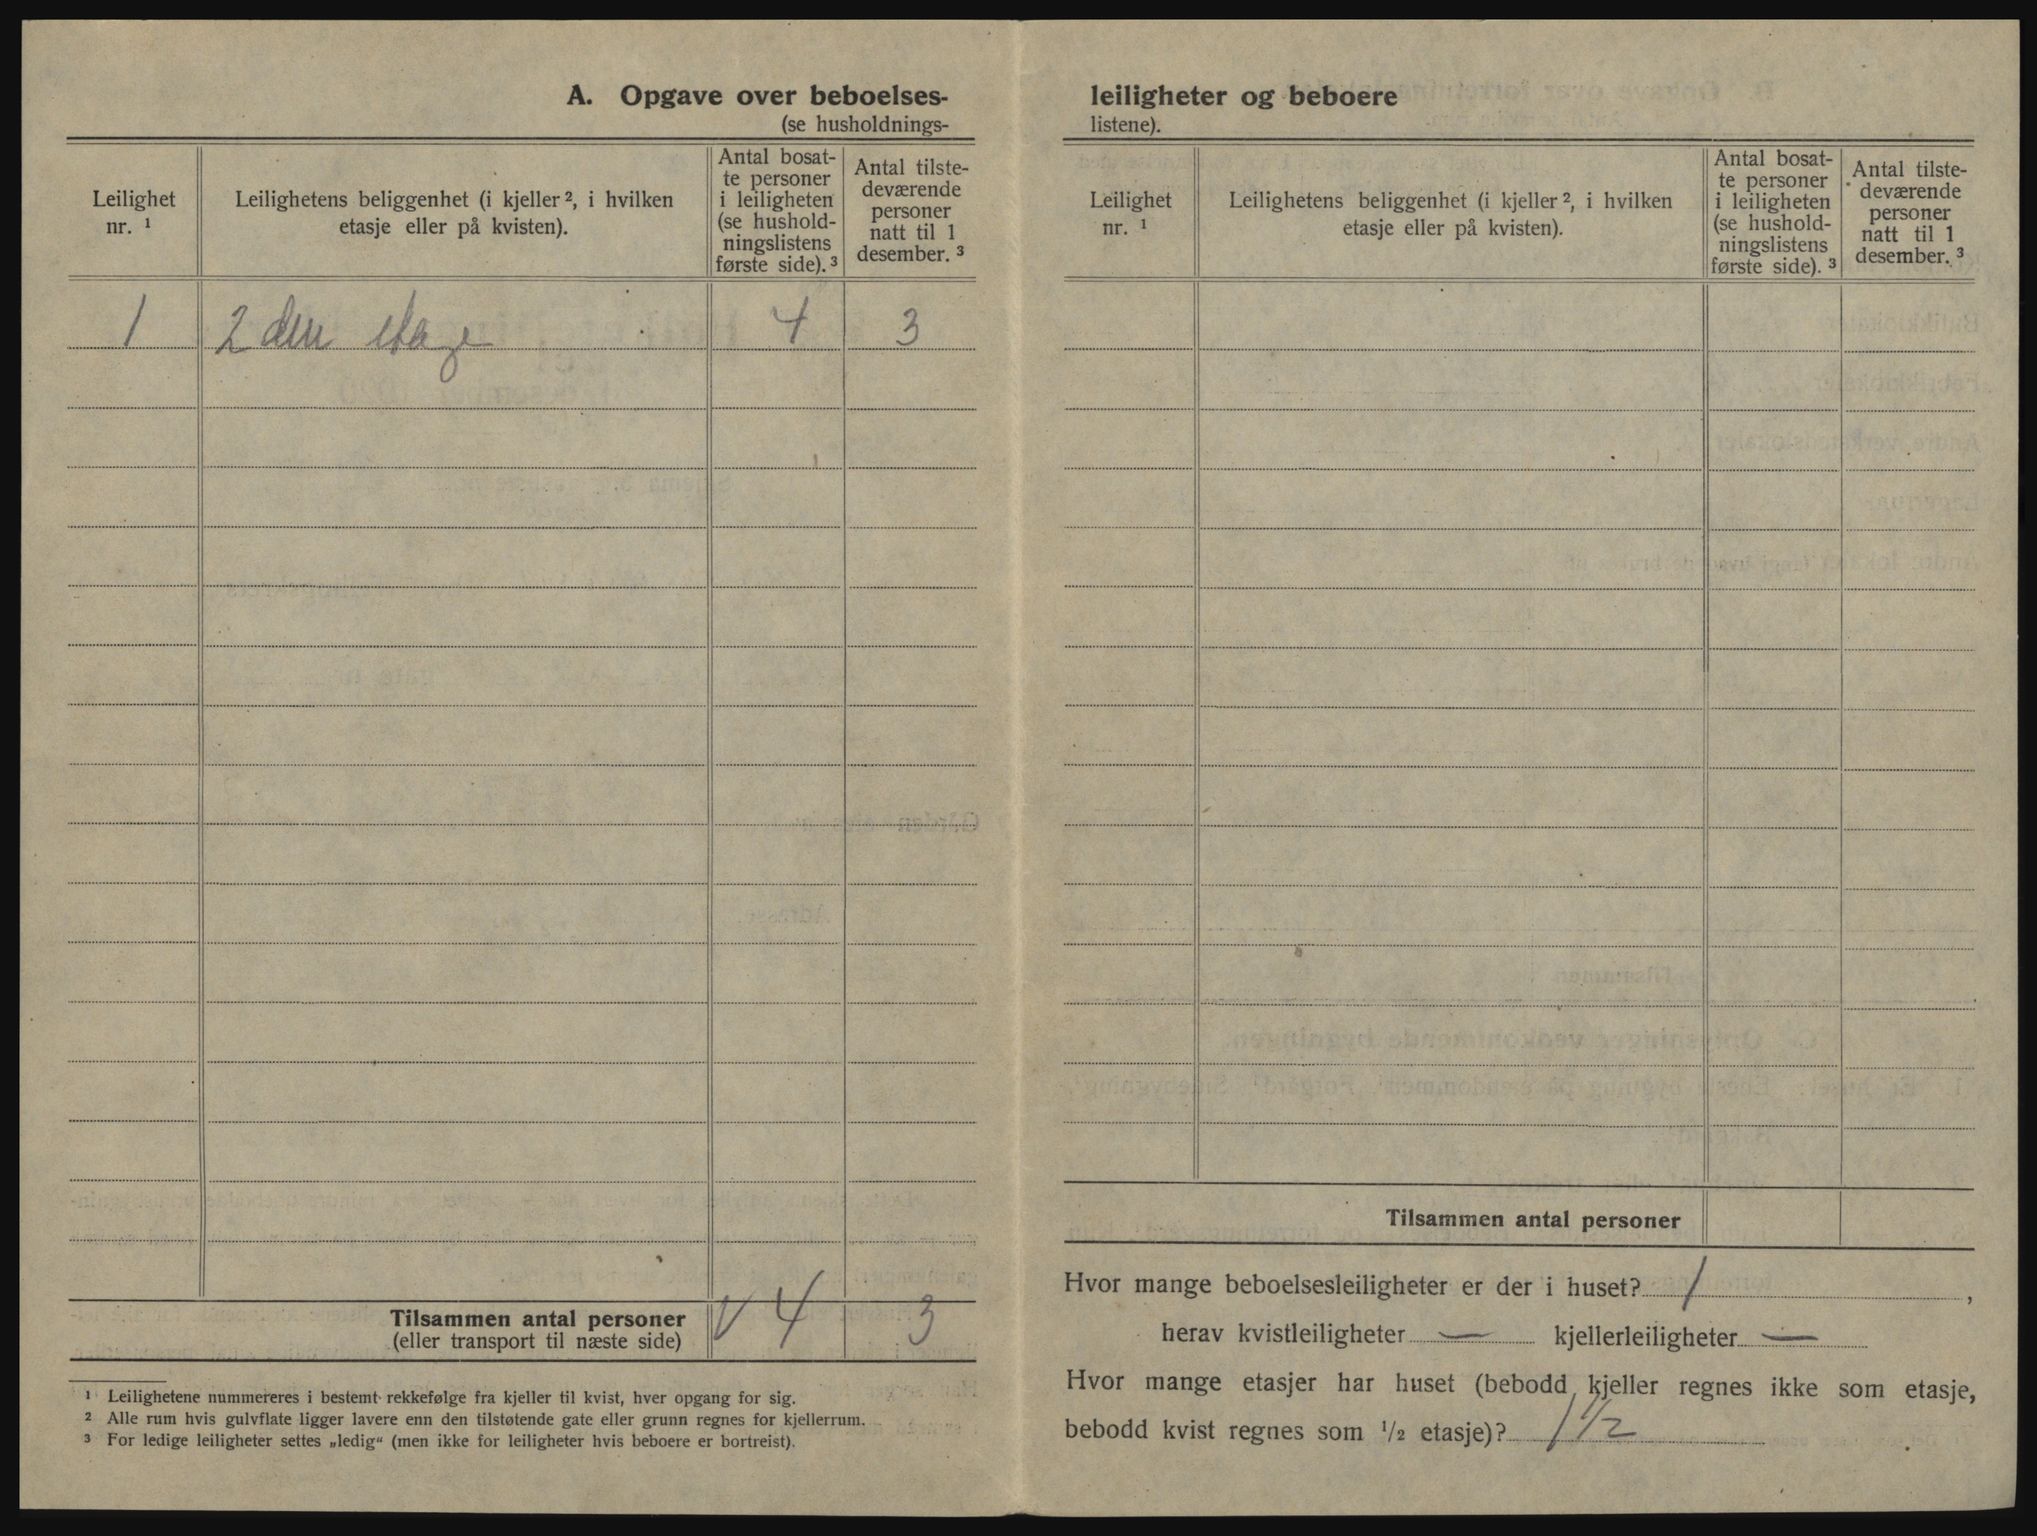 A. Opgave over beboelses-
(se husholdnings-
Leilighet
nr. ¹
Leilighetens beliggenhet (i kjeller ², i hvilken
etasje eller på kvisten).
Antal bosat-
te personer
i leiligheten
(se hushold-
ningslistens
første side). ³
Antal tilste-
deværende
personer
natt til 1
desember. ³
1 2 den etage 4 3
Tilsammen antal personer
(eller transport til næste side)
V 4 3
¹ Leilighetene nummereres i bestemt rekkefølge fra kjeller til kvist, hver opgang for sig.
² Alle rum hvis gulvflate ligger lavere enn den tilstøtende gate eller grunn regnes for kjellerrum.
³ For ledige leiligheter settes „ledig“ (men ikke for leiligheter hvis beboere er bortreist).
leiligheter og beboere
listene).
Leilighet
nr. ¹
Leilighetens beliggenhet (i kjeller ², i hvilken
etasje eller på kvisten).
Antal bosat-
te personer
i leiligheten
(se hushold-
ningslistens
første side). ³
Antal tilste-
deværende
personer
natt til 1
desember. ³
Tilsammen antal personer
Hvor mange beboelsesleiligheter er der i huset? 1,
herav kvistleiligheter — kjellerleiligheter —
Hvor mange etasjer har huset (bebodd kjeller regnes ikke som etasje,
bebodd kvist regnes som ½ etasje)? 1 1/2